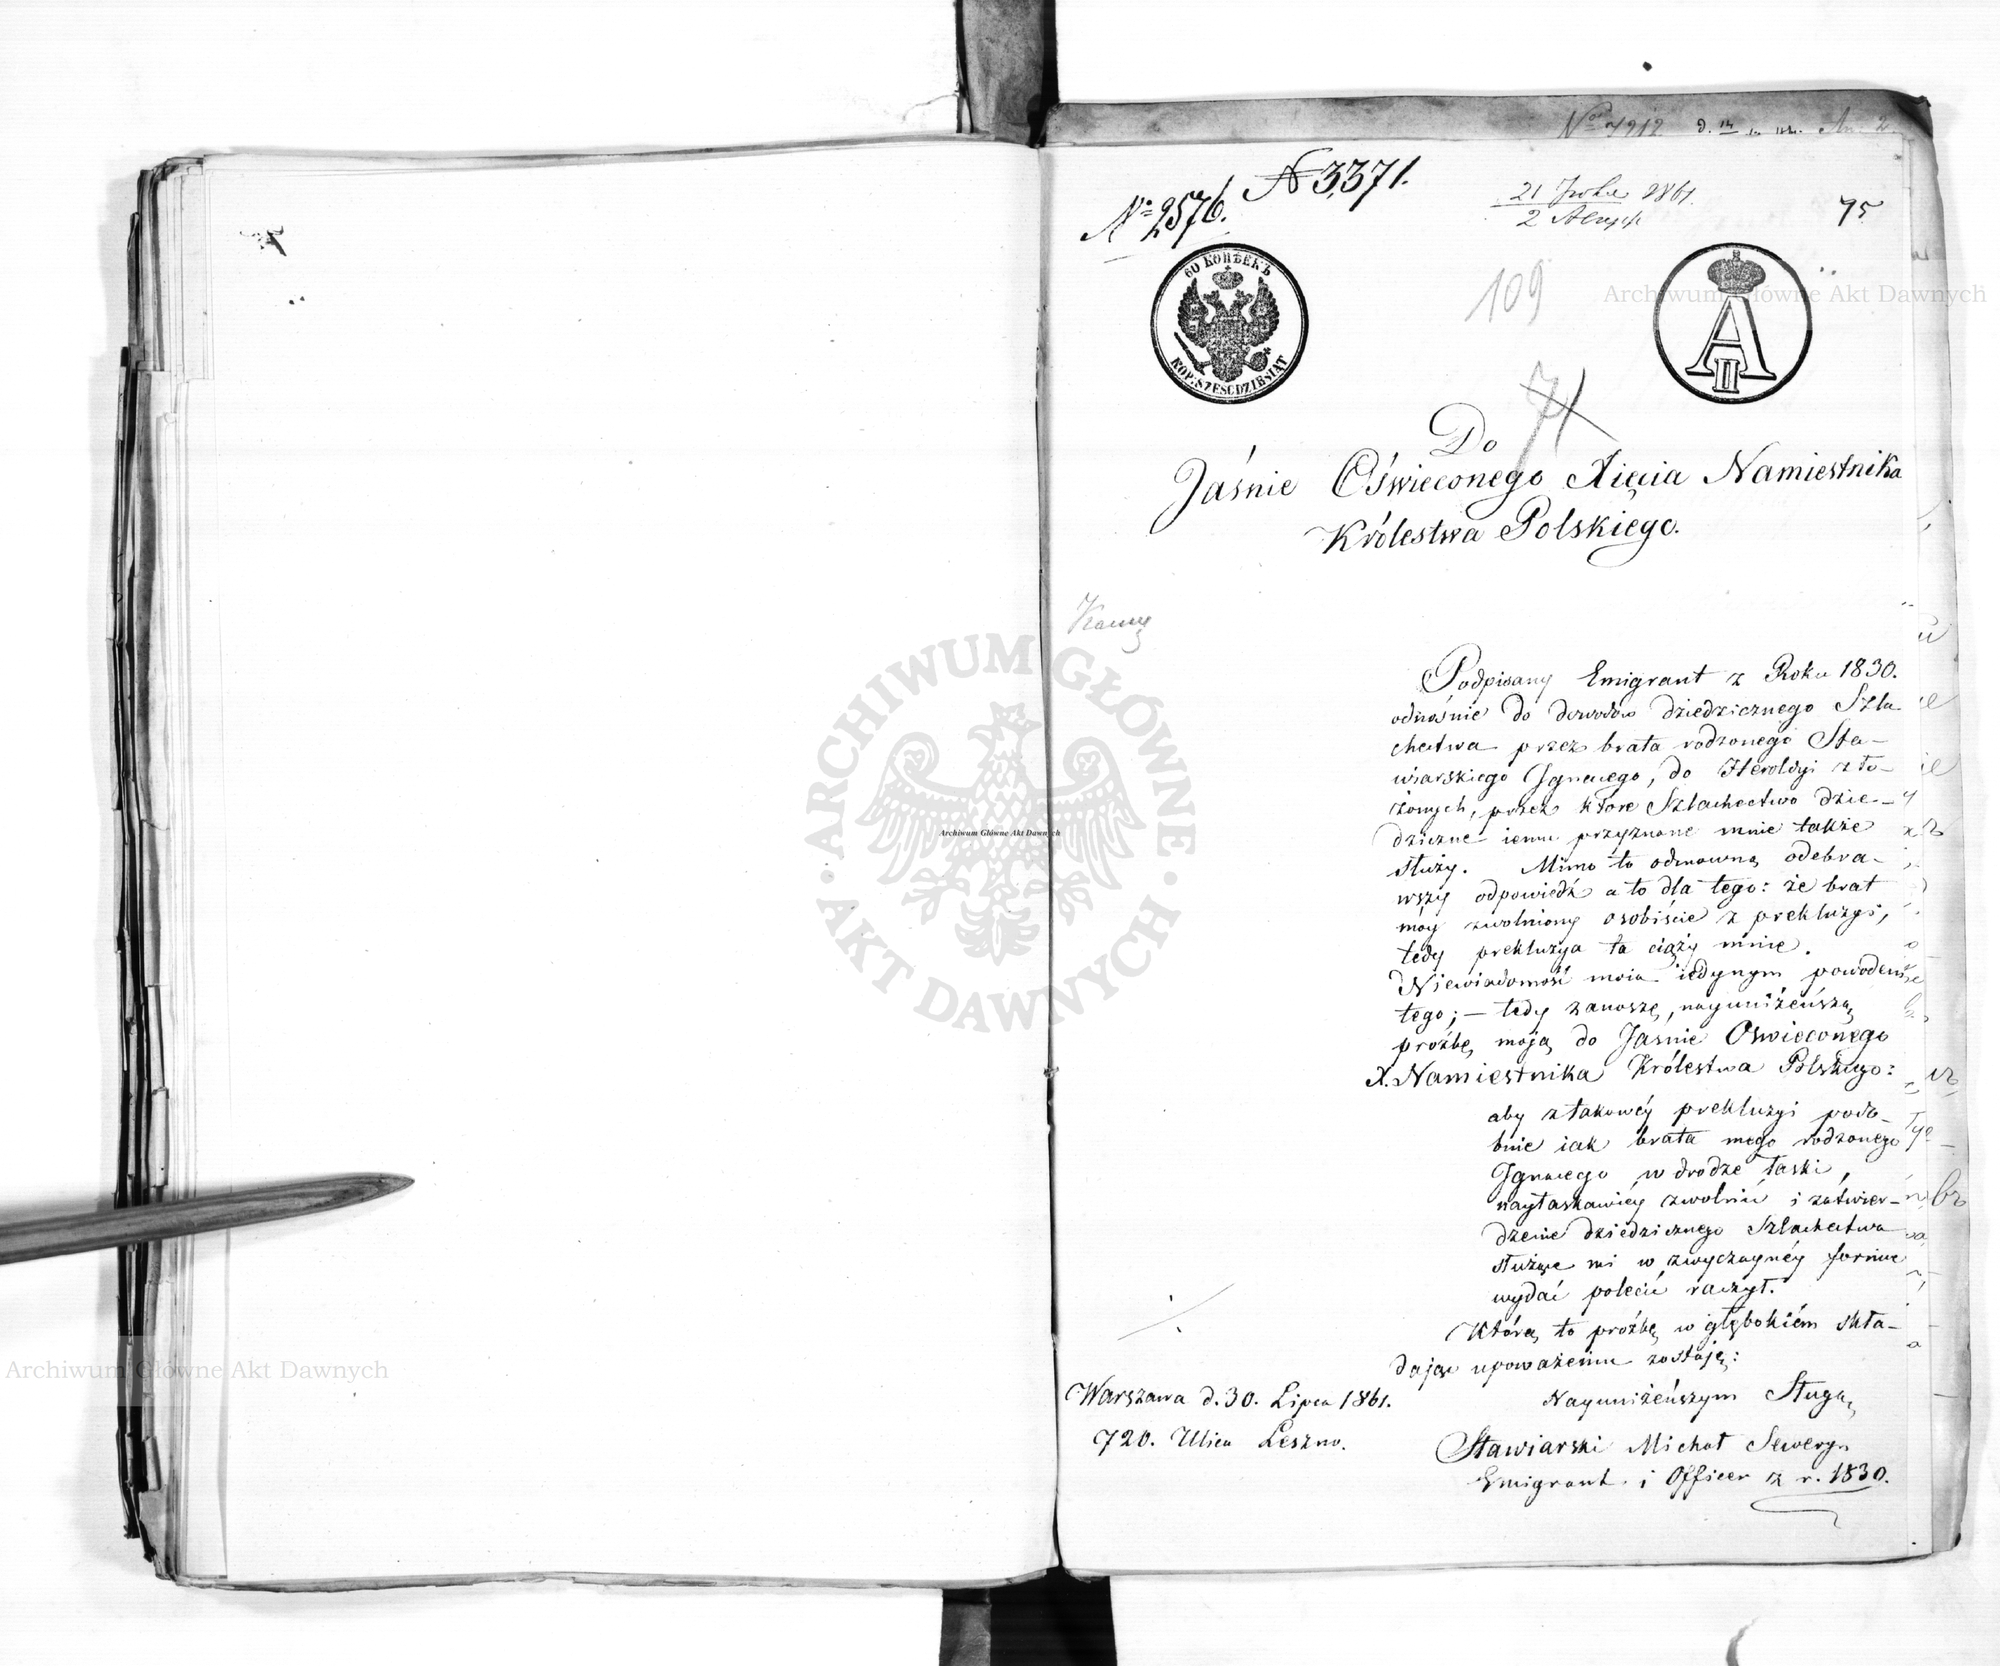 N 3371.
No 2576.
21 1861.
2
75
60 КОПѢЕКЪ
KOP. SZESĆDZIESIĄT
A II
109
71
Do
Jaśnie Oświeconego Xięcia Namiestnika
Królestwa Polskiego.
Podpisany Emigrant z Roku 1830.
odnośnie do dowodów dziedzicznego Szla
chectwa przez brata rodzonego Sta-
wiarskiego Ignacego, do Heroldyi zło-
żonych, przez które Szlachectwo dzie-
dziczne iemu przyznane mnie także
służy. Mimo to odmowną odebra-
wszy odpowiedź a to dla tego: że brat
móy zwolniony osobiście z prekluzyi,
tedy prekluzya ta ciąży mnie.
Niewiadomość moia iedynym powodem
tego; – tedy zanoszę, nayuniżeńszą
prożbę moją do Jasnie Oswieconego
X. Namiestnika Królestwa Polskiego:
aby z takowéy prekluzyi podo-
bnie iak brata mego rodzonego
Ignacego w drodze łaski,
nayłaskawiéy zwolnić i zatwier-
dzenie dziedzicznego Szlachectwa
służące mi w zwyczaynéy formie
wydać polecić raczył.
Którą to prożbę w głębokiém skła-
dając upoważeniu zostaję:
Warszawa d. 30. Lipca 1861.
Nayuniżeńszym Sługą
720. Ulica Leszno.
Stawiarski Michał Seweryn
Emigrant i Officer z r. 1830.
Archiwum Główne Akt Dawnych
ARCHIWUM GŁÓWNE
AKT DAWNYCH
Archiwum Główne Akt Dawnych
Archiwum Główne Akt Dawnych